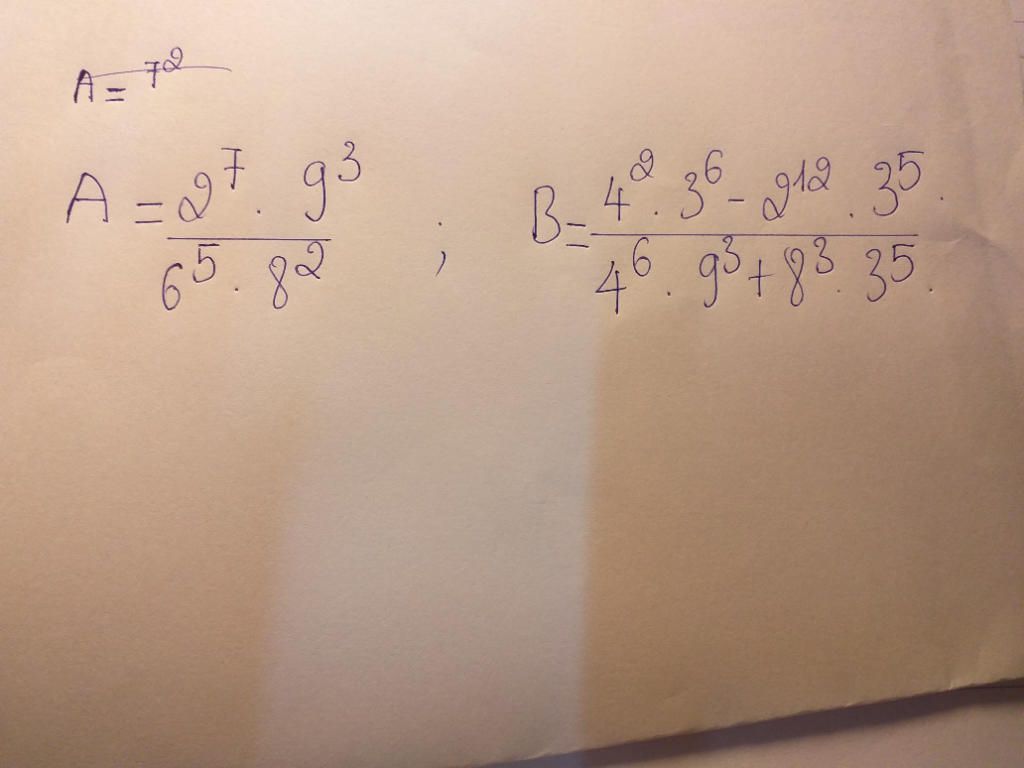 A = 7²
A = 2⁷ . 9³ / 6⁵ . 8² ; B = 4² . 3⁶ - 2¹² . 3⁵ . / 4⁶ . 9³ + 8³ . 3⁵ .